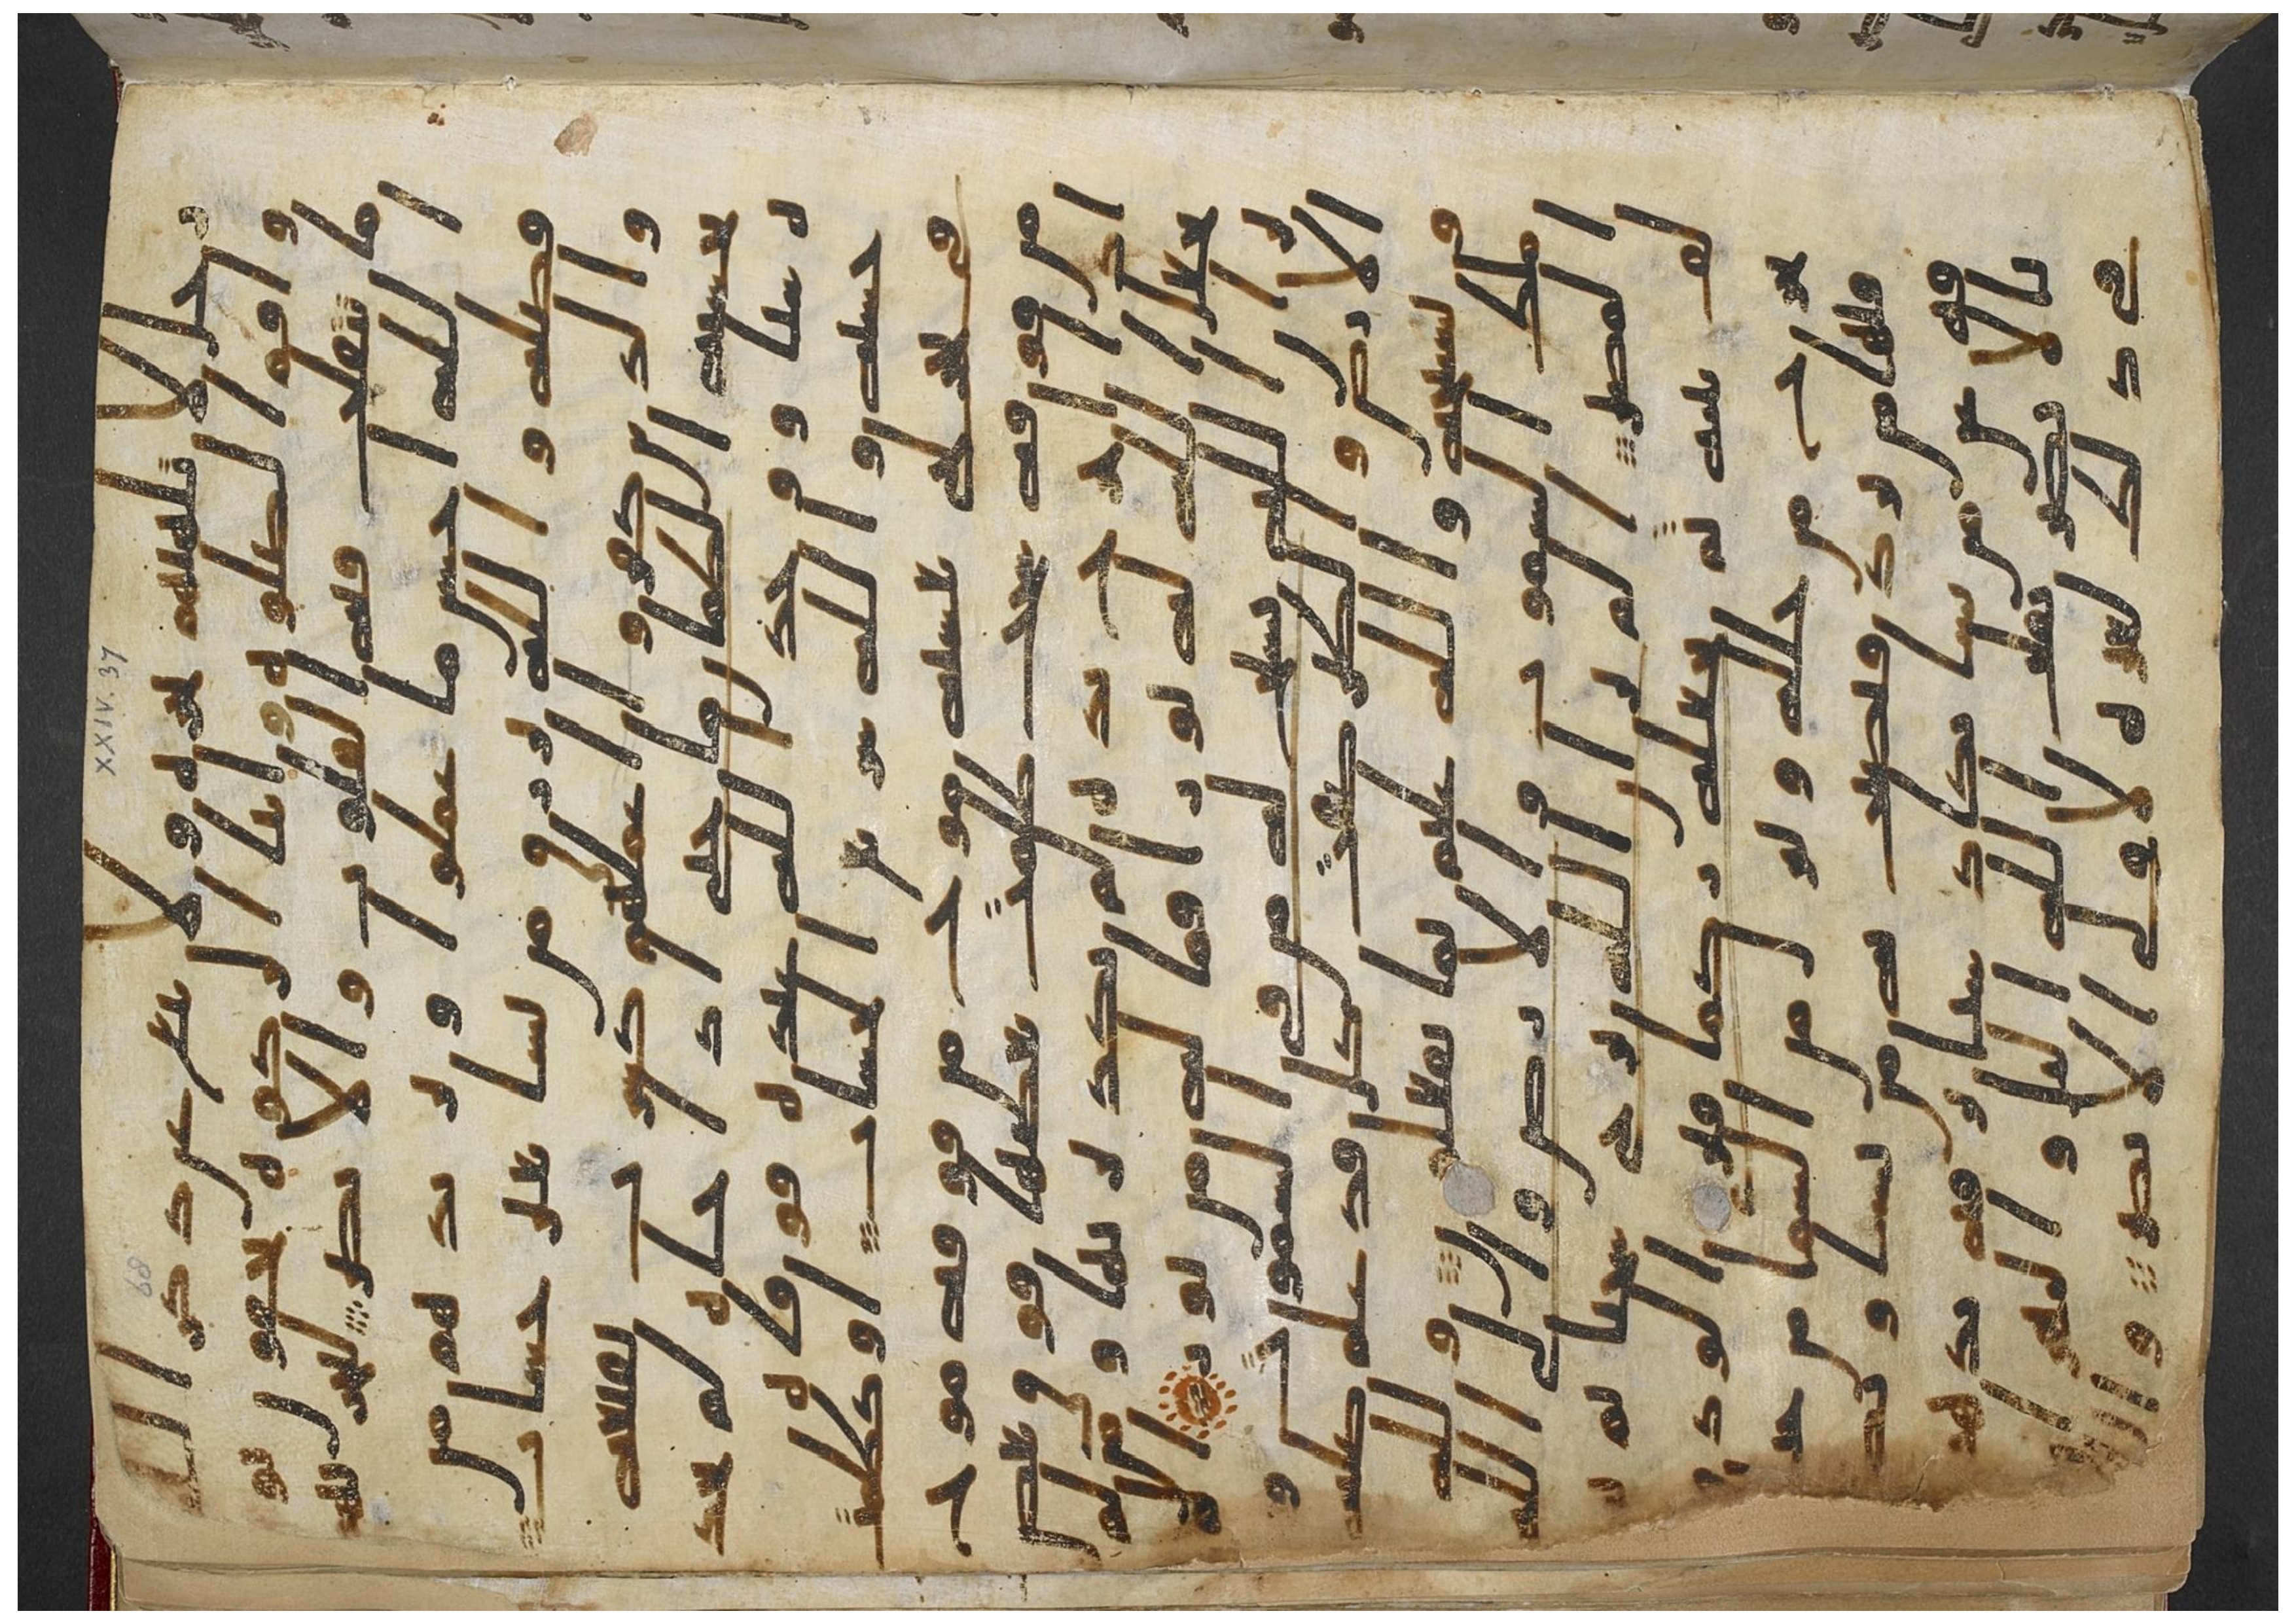 رجل لا تلهيهم تجرة ولا بيع عن ذكر الله
واقام الصلوة وايتا الزكوة يخافون يو
ما تتقلب فيه القلوب والابصر ليجزيهم
الله احسن ما عملوا ويزيدهم من
فضله والله يرزق من يشا بغير حساب
والذين كفروا اعملهم كسراب بقيعة
يحسبه الظمان ما حتى اذا جاه لم يجد
ه شيا ووجد الله عنده فوفيه
حسابه والله سريع الحساب او كظلمت
في بحر لجي يغشيه موج من فوقه موج
من فوقه سحب ظلمت بعضها فوق بعض
اذا اخرج يده لم يكد يريها ومن لم
يجعل الله له نورا فما له من نور الم
تر ان الله يسبح له من في السموت و
الارض والطير صفت كل قد علم صلاته
وتسبيحه والله عليم بما يفعلون ولله
ملك السموت والارض والى الله
المصير الم تر ان الله يزجي سحبا ثم يو
لف بينه ثم يجعله ركما فترى الودق
يخرج من خلله وينزل من السما من
جبال فيها من برد فيصيب به من يشا ويصر
فه عن من يشا يكاد سنا برقه يذهب
بالابصر يقلب الله اليل والنهار ان
في ذلك لعبرة لاولي الابصر والله
XXIV. 37
68